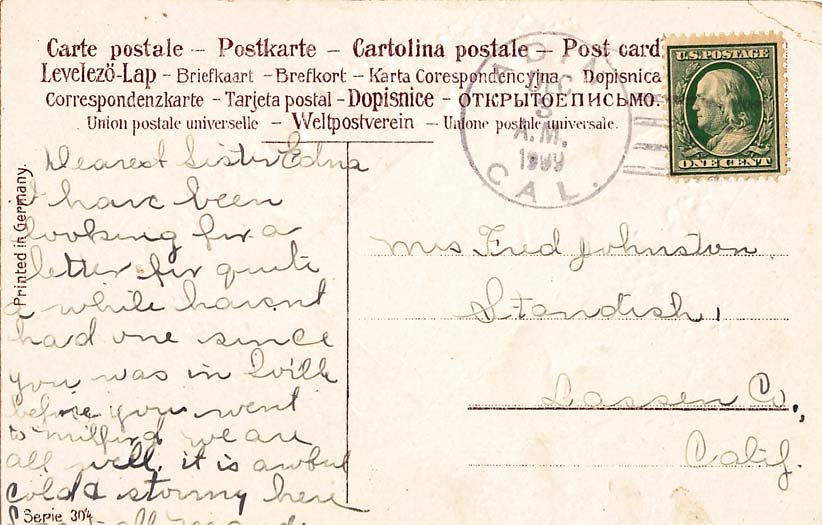 Carte postale – Postkarte – Cartolina postale – Post card
Levelező-Lap – Briefkaart – Brefkort – Karta Corespondencyjna Dopisnica
Correspondenzkarte – Tarjeta postal – Dopisnice – ОТКРЫТОЕ ПИСЬМО.
Union postale universelle – Weltpostverein – Unione postale universale.
ADIN
DEC
3
A.M.
1909
CAL.
U.S. POSTAGE
ONE CENT
Printed in Germany.
Dearest Sister Edna
I have been
looking for a
letter for quite
a while havent
had one since
you was in Sville
before you went
to Milford we are
all well, it is awful
cold & stormy here
Serie 304
Mrs Fred Johnston
Standish,
Lassen Co.,
Calif.